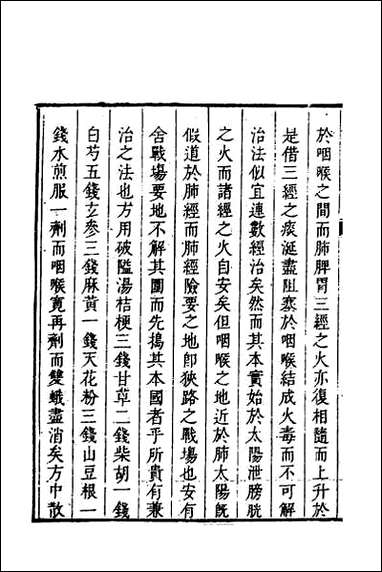 於咽喉之間而肺脾胃三經之火亦復相隨而上升於
是借三經之痰涎盡阻塞於咽喉結成火毒而不可解
治法似宜連數經治矣然而其本實始於太陽泄膀胱
之火而諸經之火自安矣但咽喉之地近於肺太陽既
假道於肺經而肺經險要之地卽狹路之戰場也安有
舍戰場要地不解其圍而先搗其本國者乎所貴有兼
治之法也方用破隘湯桔梗三錢甘草二錢柴胡一錢
白芍五錢玄參三錢麻黃一錢天花粉三錢山豆根一
錢水煎服一劑而咽喉寬再劑而雙蛾盡消矣方中散